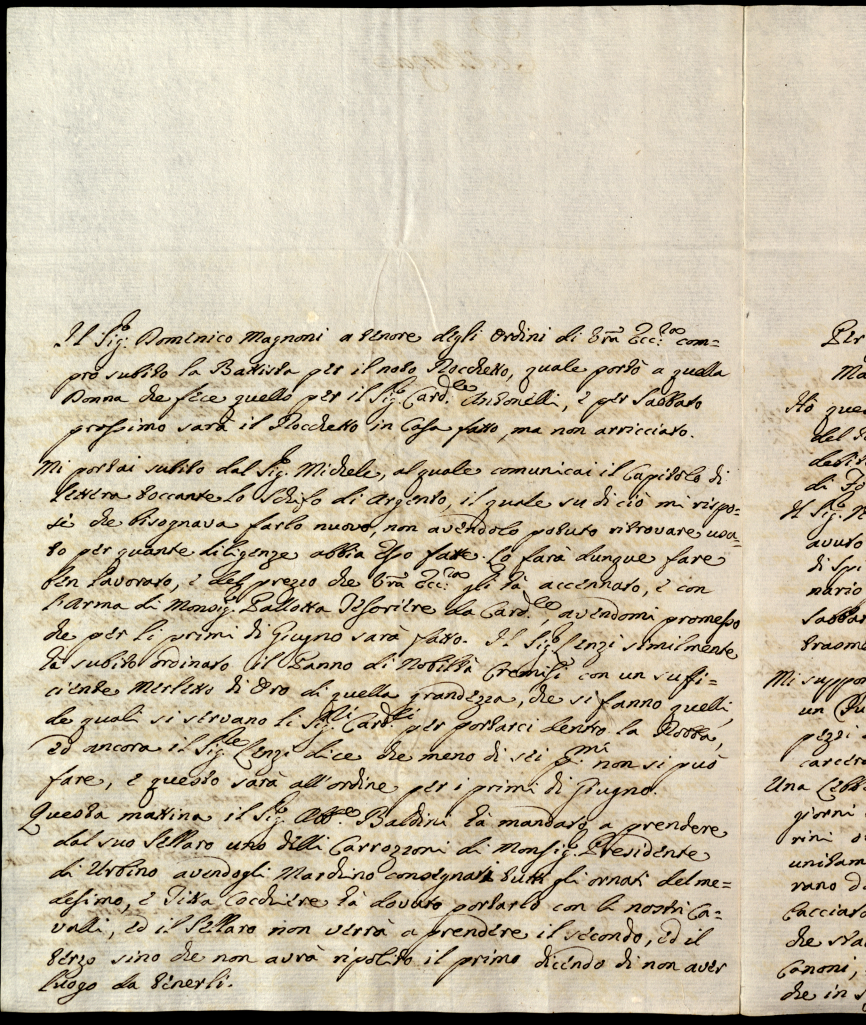 Il Sig.e Domenico Magnoni a tenore degli Ordini di Vra Ecc.za com=
prò subito la Battista per il noto Rocchetto, quale portò a quella
Donna che fece quello per il Sig. Card.le Antonelli, e per Sabbato
prossimo sarà il Rocchetto in Casa fatto, ma non arricciato.
Mi portai subito dal Sig.e Michele, al quale comunicai il Capitolo di
lettera toccante lo Schifo di Argento, il quale su di ciò mi rispo=
se che bisognava farlo nuovo, non avendolo potuto ritrovare usa=
to per quante diligenze abbia Esso fatte. Lo farà dunque fare
ben lavorato, e del prezzo che Vra Ecc.za gli hà accennato, e con
l'Arma di Monsig.e Pallotta Tesoriere da Card.le, avendomi promesso
che per li primi di Giugno sarà fatto. Il Sig.e Lenzi similmente
hà subito ordinato il Panno di Nobiltà Cremisi con un suffi=
ciente Merletto di Oro di quella grandezza, che si fanno quelli,
de quali si servano li Sig.ri Card.li per portarci dentro la Robba,
ed ancora il Sig.e Lenzi dice che meno di sei p.mi non si può
fare, e questo sarà all'ordine per i primi di Giugno.
Questa mattina il Sig.e Abb.e Baldini hà mandato a prendere
dal suo Sellaro uno delli Carrozzoni di Monsig. Presidente
di Urbino avendogli Marchino consegnati tutti gli ornati del me=
desimo, e Titta Cocchiere hà dovuto portarlo con li nostri Ca=
valli, ed il Sellaro non verrà a prendere il secondo, ed il
terzo sino che non avrà ripolito il primo dicendo di non aver
luogo da tenerli.
Per
Ma
Hò que
del
di
Il Sig.
avuto
di Spi
nario
Sabbat
trasm
Mi suppo
un
pezzi
carcer
Una
giorni
rini
unitam
vano d
Cacciat
che
Canoni,
che in